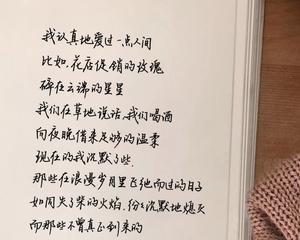 我认真地爱过一点人间
比如.花店促销的玫瑰
碎在云端的星星
我们在草地说话,我们喝酒
向夜晚借来足够的温柔
现在的我沉默了些.
那些在浪漫岁月里飞驰而过的日子
如同失了柴的火焰.纷纷沉默地熄灭
而那些不曾真正到来的